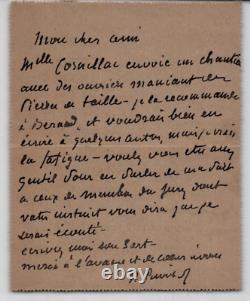 Mon cher ami
Mlle Cornillac envoie un chantier
avec des ouvriers maniant des
pierres de taille - je la recommande
à Bernard, et voudrais bien en
écrire à quelques autres, mais je crains
la fatigue - voulez vous être assez
gentil pour en parler de ma part
à ceux de membres du Jury dont
votre instinct vous dira que je
serais écouté
écrivez moi son sort
merci à l'avance et de cœur à vous
ebay